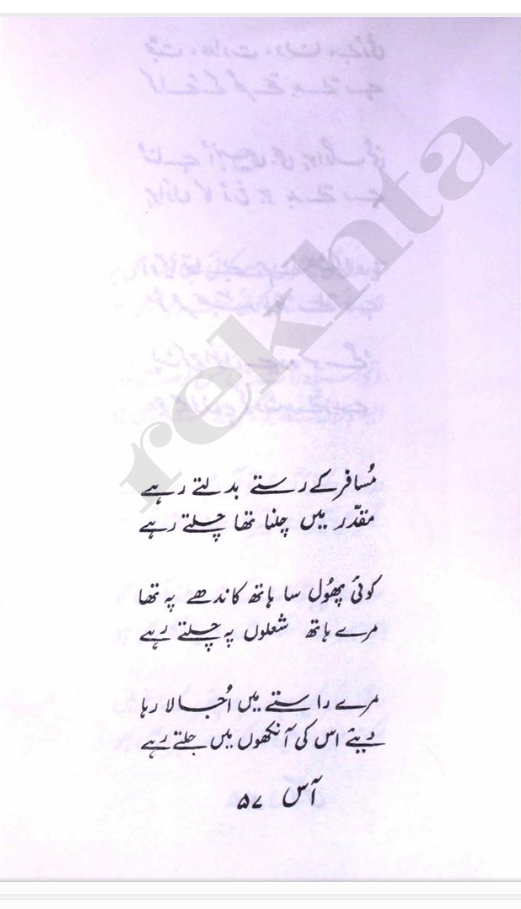 rekhta
مُسافر کے رستے بدلتے رہے
مقدّر میں چلنا تھا چلتے رہے
کوئی پھُول سا ہاتھ کاندھے پہ تھا
مرے ہاتھ شعلوں پہ چلتے رہے
مرے راستے میں اُجالا رہا
دیئے اس کی آنکھوں میں جلتے رہے
آس ۵۷